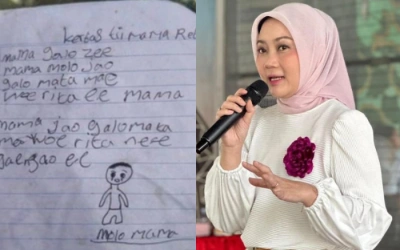 kertas tii mama Re
mama galo zee
mama molo Jao
galo mata mae
woe rita ee mama
mama jao galo mata
mae woe rita nee
gae ngao ee
molo mama